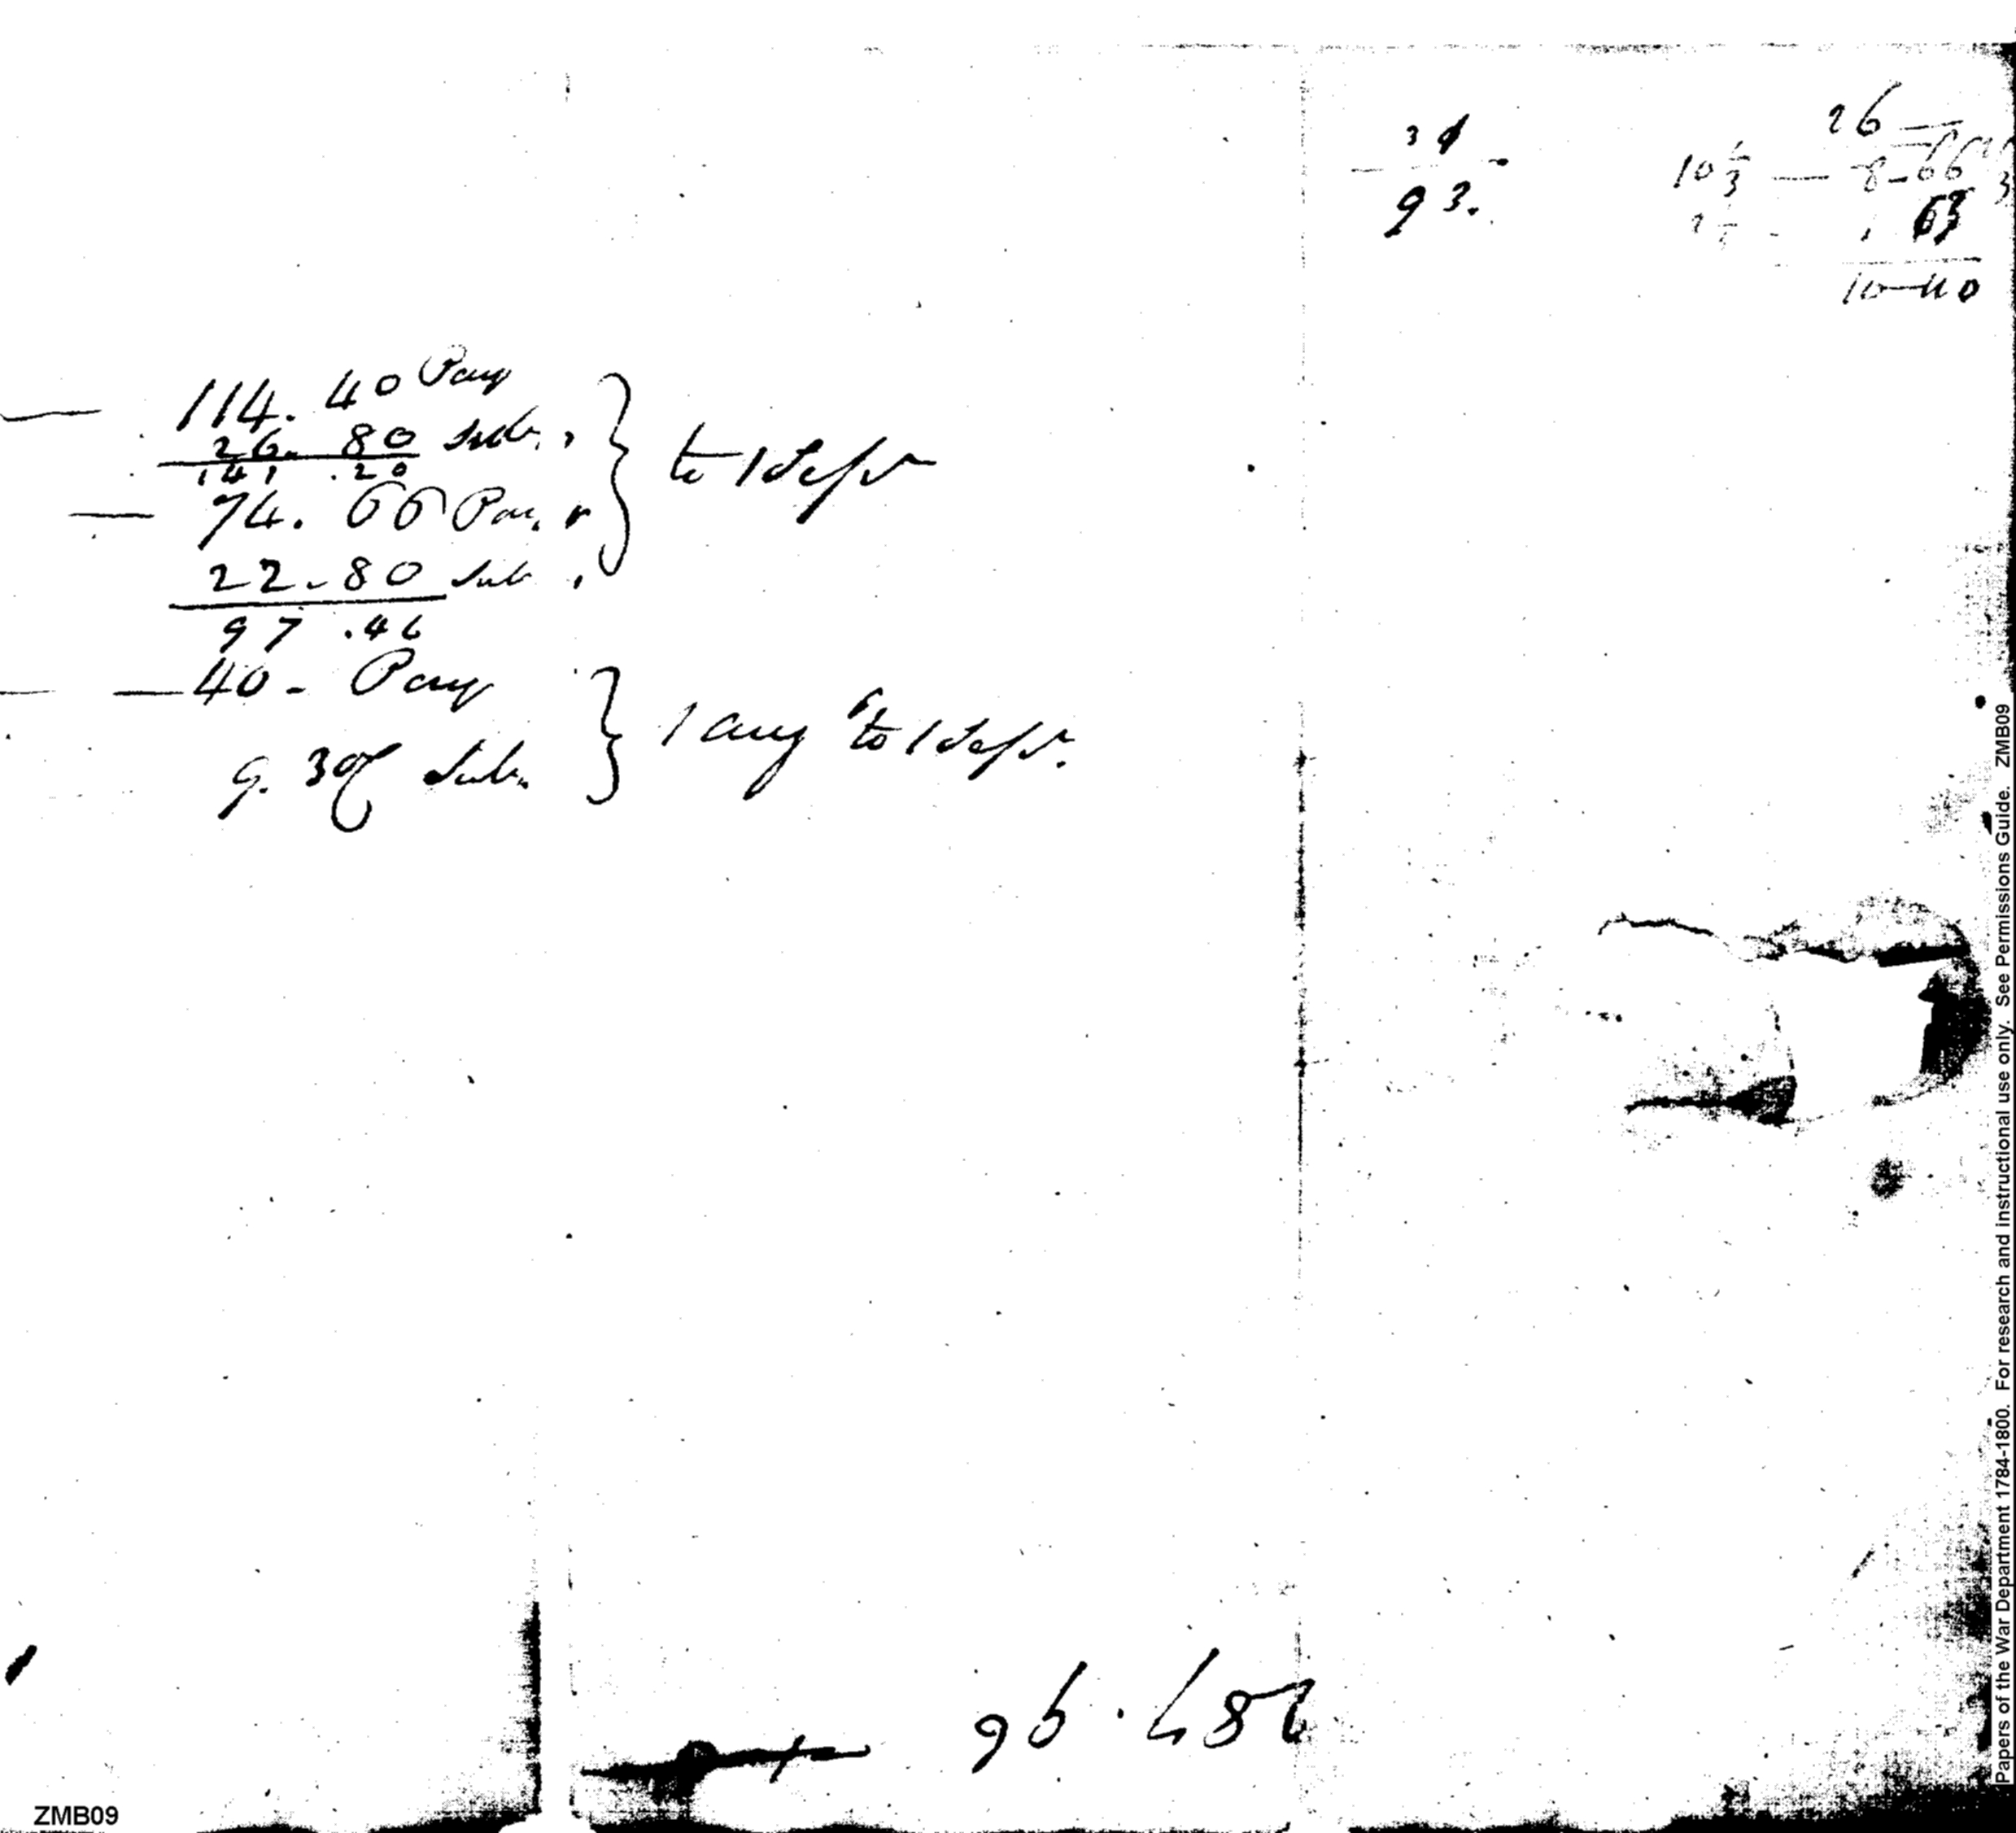 — 114. 40 Pay
26. 80 Sub.
141 . 20
— 74. 66 Pay
22 - 80 Sub
} to 1 Sepr
97 . 46
— — 40 - Pay
9. 30 Sub.
} 1 Aug to 1 Sepr.
31
93.
26 —
10 1/3 — 8-66
10-40
287.96
ZMB09
Papers of the War Department 1784-1800. For research and instructional use only. See Permissions Guide. ZMB09